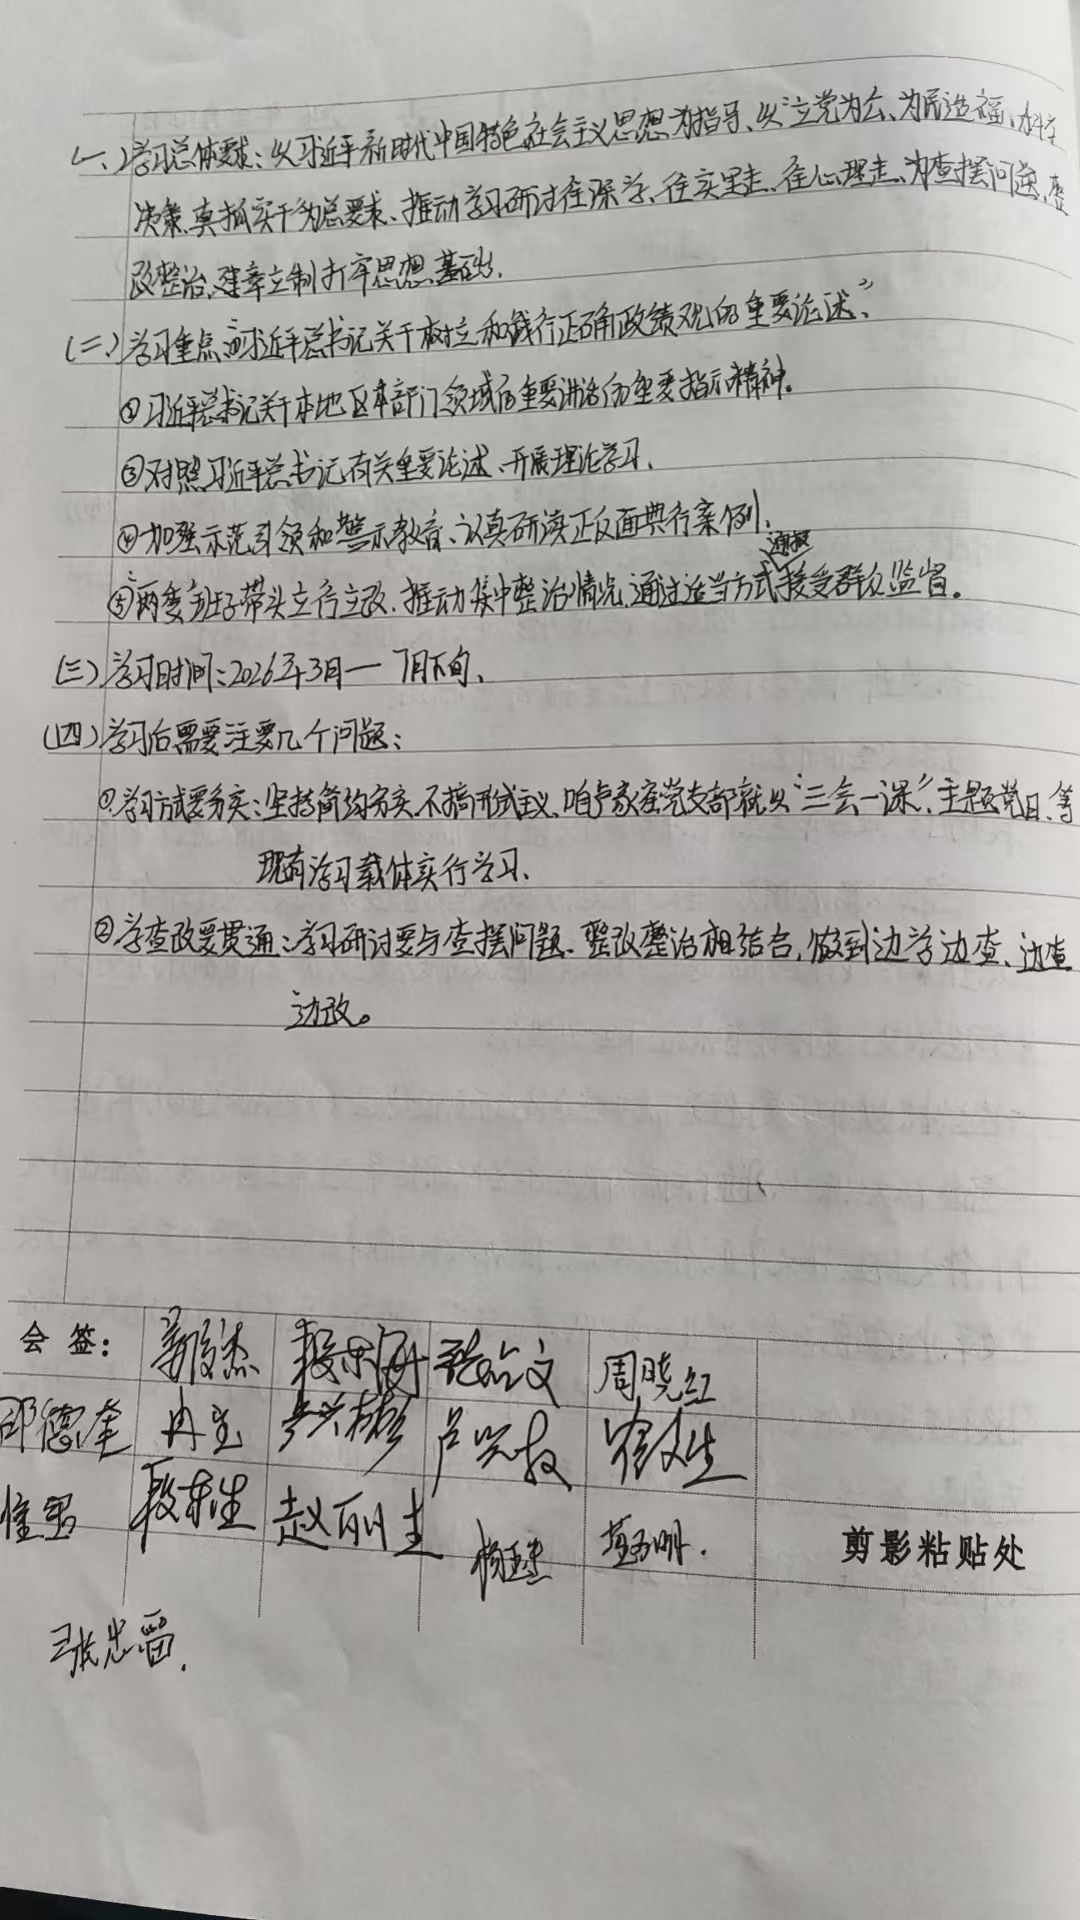 (一)学习总体要求：以习近平新时代中国特色社会主义思想为指导、以“立党为公、为民造福、科学
决策、真抓实干为总要求、推动学习研讨往深学、往实里走、往心理走、为查摆问题、整
改整治、建章立制打牢思想基础。
(二)学习重点①习近平总书记关于树立和践行正确政绩观的重要论述”、
②习近平总书记关于本地区本部门领域的重要讲话的重要指示精神。
③对照习近平总书记有关重要论述、开展理论学习、
④加强示范引领和警示教育、认真研读正反面典行案例、
通报
⑤“两委”班子带头立行立改、推动集中整治情况、通过适当方式接受群众监督。
(三)学习时间：2026年3月—7月下旬、
(四)学习后需要注要几个问题：
①学习方式要务实：坚持简约务实、不搞形式主义、咱卢家窑党支部就以“三会一课”、主题党日、等
现有学习载体实行学习、
②学查改要贯通：学习研讨要与查摆问题、整改整治相结合，做到边学边查、边查
边改。
会 签：
段东海
周晓红
邱德奎 冉宝
段东生 赵丽生
剪影粘贴处
张忠留.